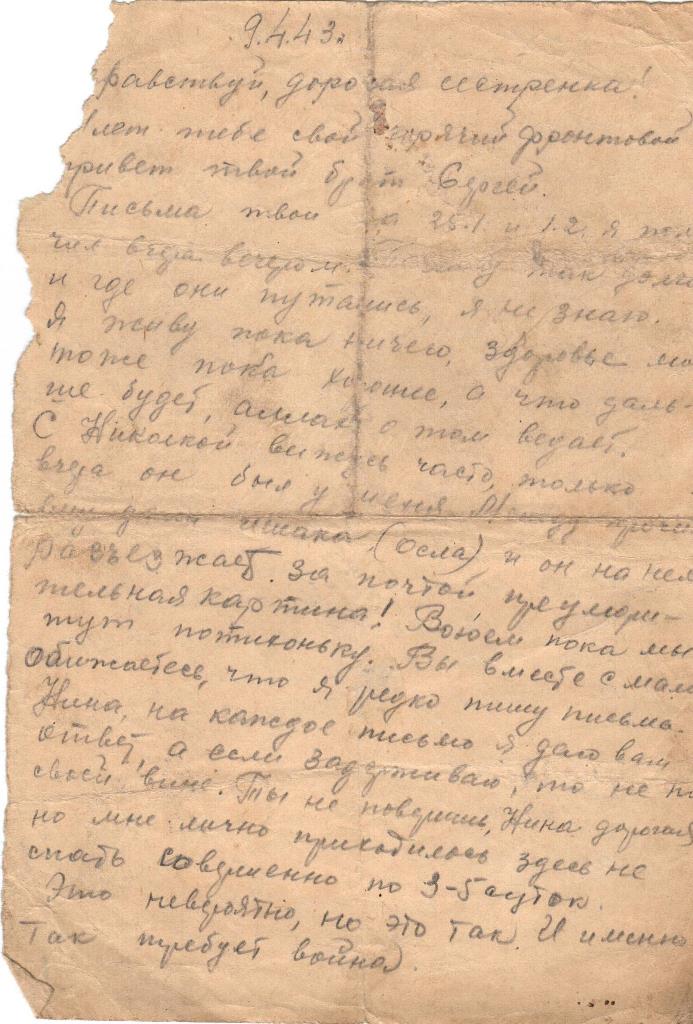 9.4.43г.
равствуй, дорогая сестренка!
лет тебе свой горячий фронтовой
привет твой брат Сергей.
Письма твои за 25.1. и 1.2. я пол
чил вчера вечером. Почему так долго
и где они путались, я не знаю.
Я живу пока ничего, здоровье мо
тоже пока хорошее, а что даль-
ше будет, аллах о том ведает.
С Николкой вижусь часто, только
вчера он был у меня. Между прочим
ему дали ишака (осла) и он на нем
разъезжает за почтой преумори-
тельная картина! Воюем пока мы
тут потихоньку. Вы вместе с мам
обижаетесь, что я редко пишу письма.
Нина, на каждое письмо я даю вам
ответ, а если задерживаю, то не по
своей вине. Ты не поверишь, Нина дорогая,
но мне лично приходилось здесь не
спать совершенно по 3-5 суток.
Это невероятно, но это так И именно
так требует война.